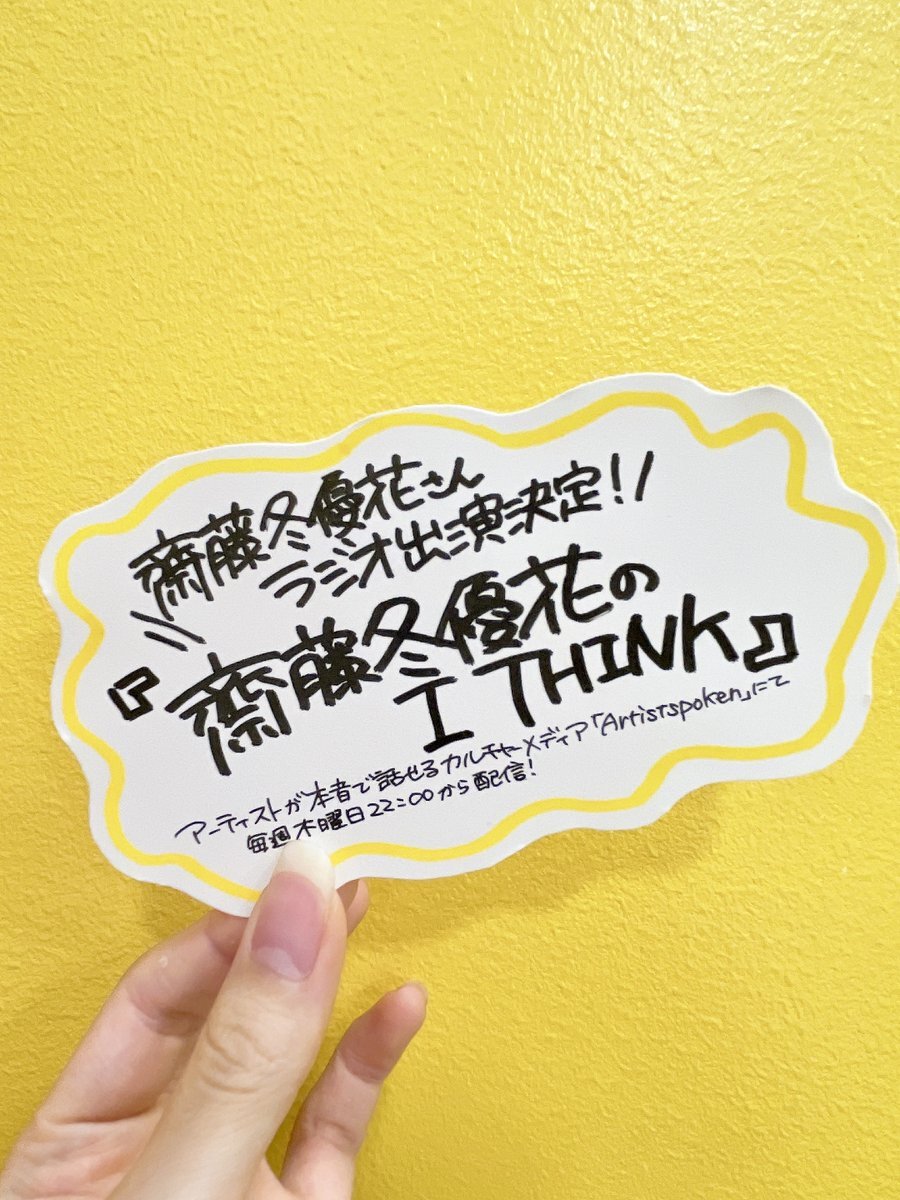 齋藤冬優花さん
ラジオ出演決定!!
『齋藤冬優花の
I THINK』
アーティストが本音で話せるカルチャーメディア「Artistspoken」にて
毎週木曜日22:00から配信!